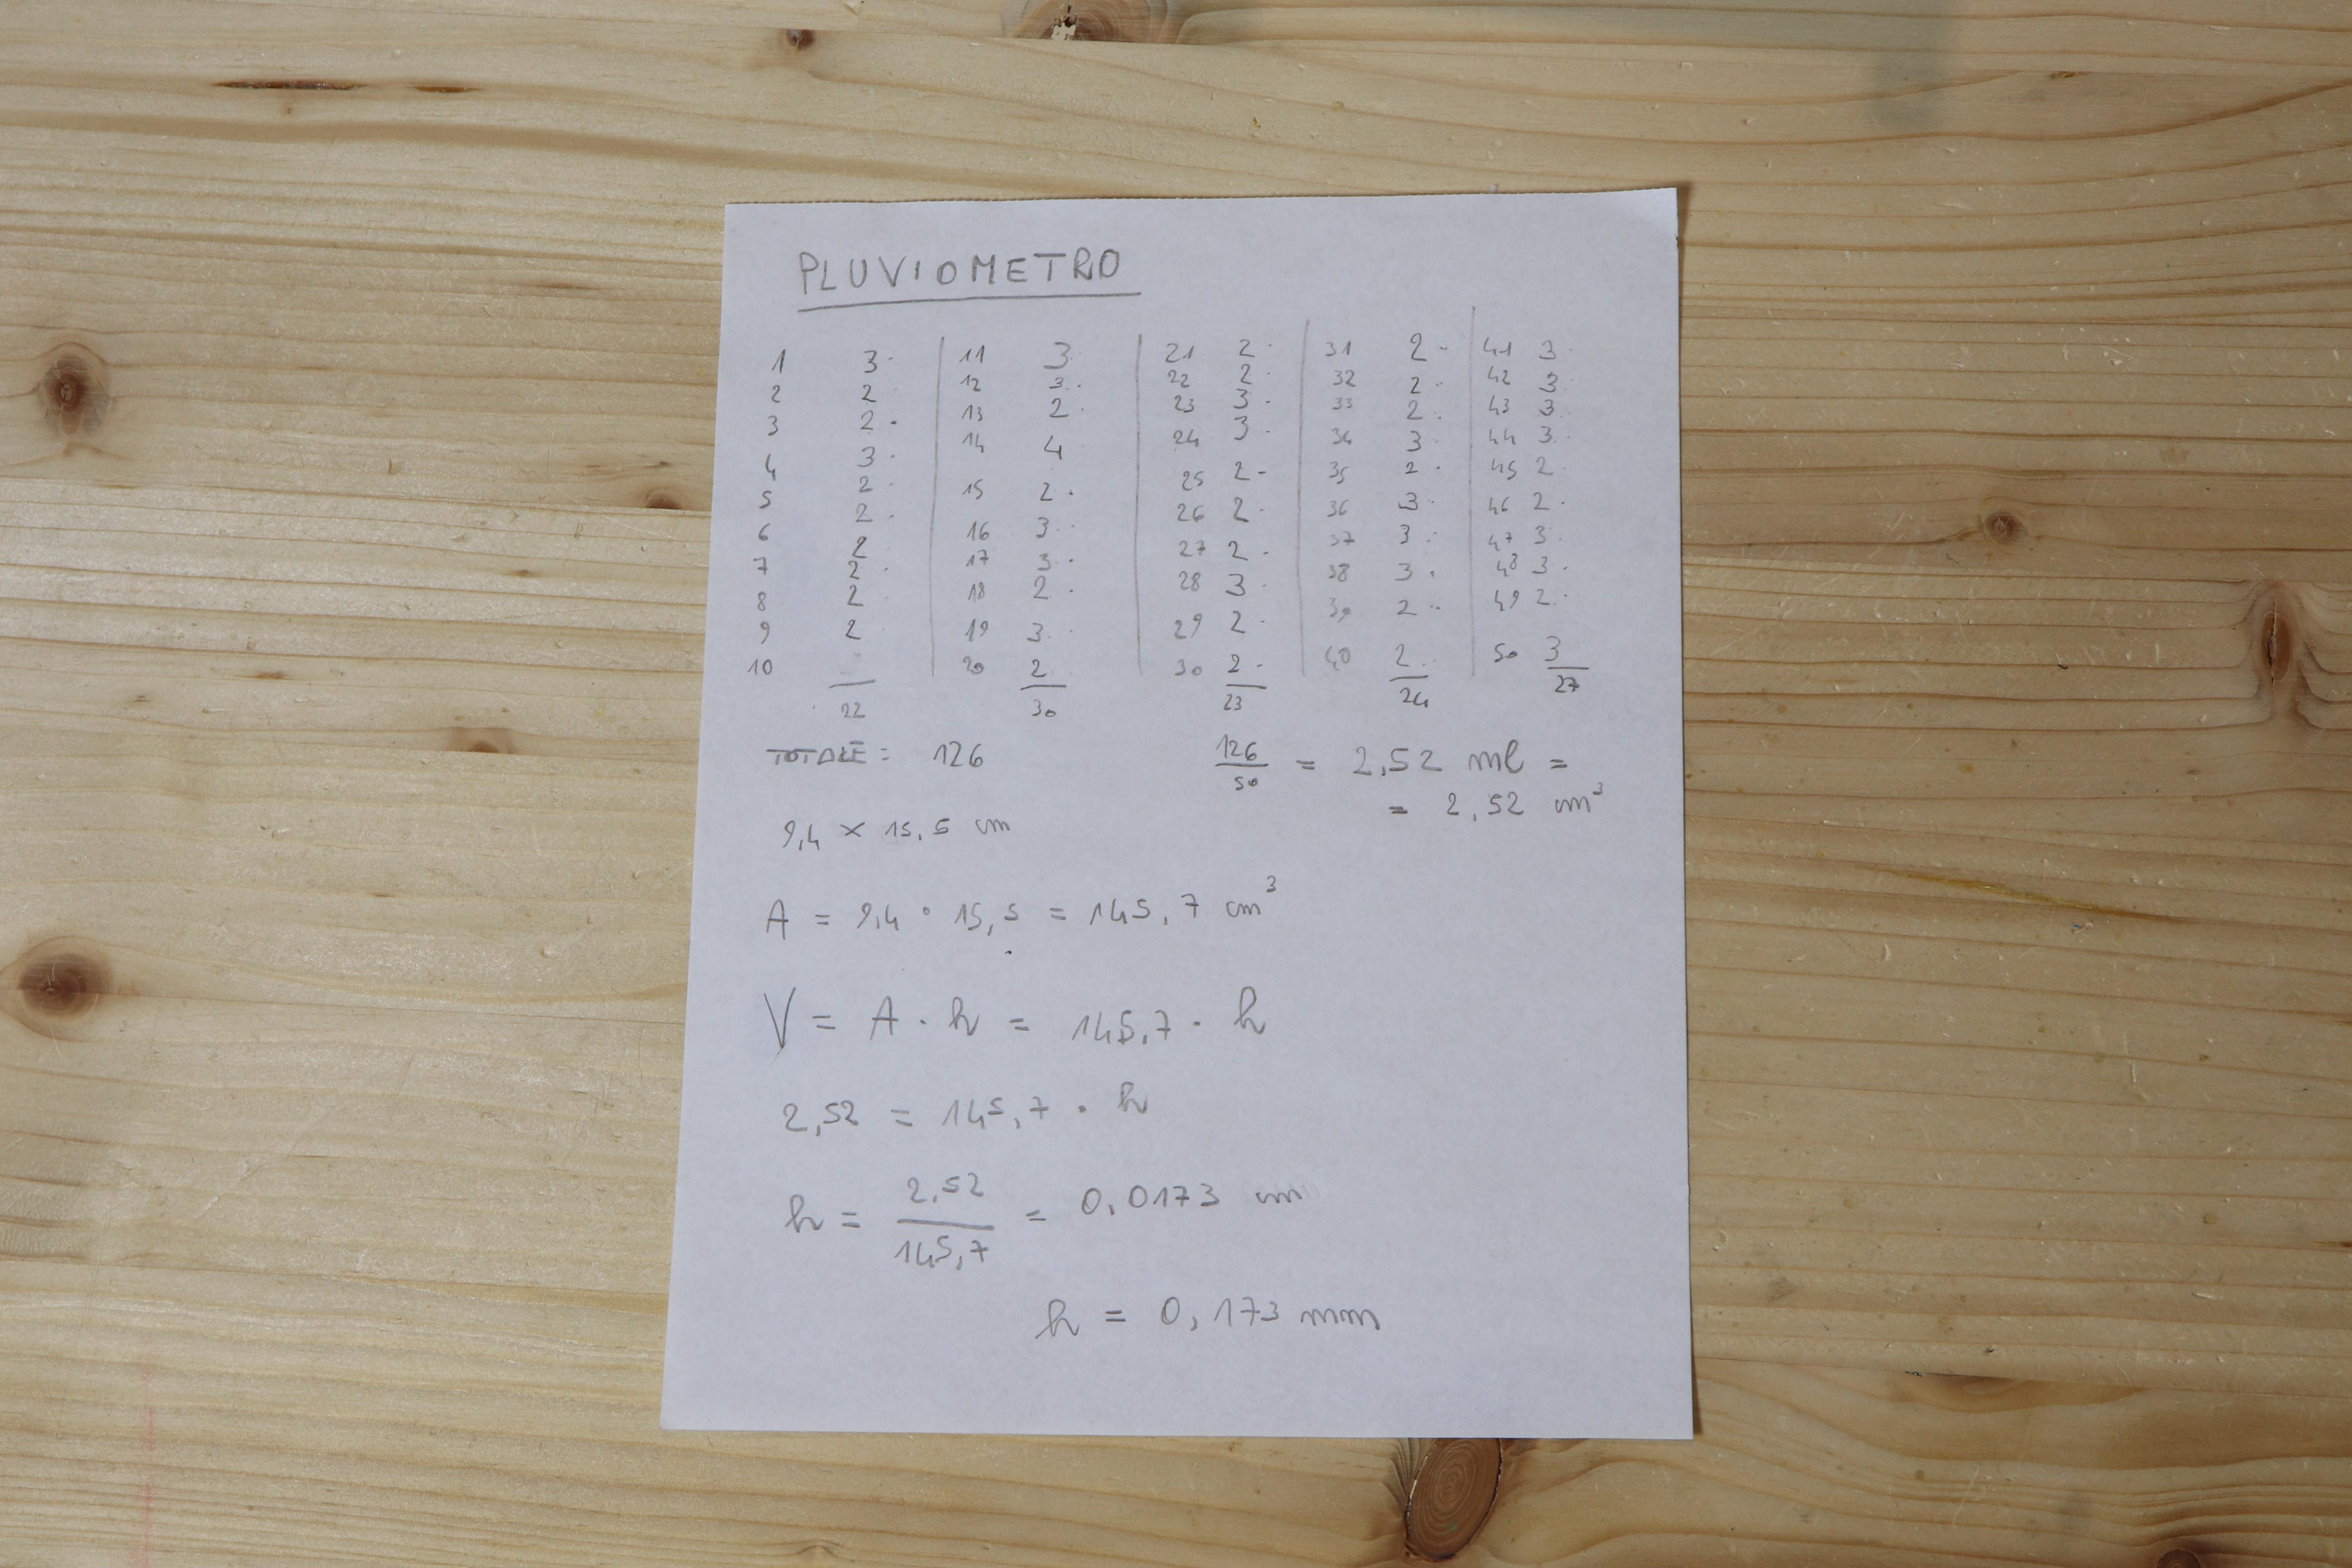 PLUVIOMETRO
1 3 11 3 21 2 31 2 41 3
2 2 12 3 22 2 32 2 42 3
3 2 13 2 23 3 33 2 43 3
4 3 14 4 24 3 34 3 44 3
5 2 15 2 25 2 35 2 45 2
6 2 16 3 26 2 36 3 46 2
7 2 17 3 27 2 37 3 47 3
8 2 18 2 28 3 38 3 48 3
9 2 19 3 29 2 39 2 49 2
10 2 20 2 30 2 40 2 50 3
22 30 23 24 27
TOTALE = 126
126/50 = 2,52 ml =
= 2,52 cm³
9,4 × 15,5 cm
A = 9,4 · 15,5 = 145,7 cm³
V = A · h = 145,7 · h
2,52 = 145,7 · h
h = 2,52/145,7 = 0,0173 cm
h = 0,173 mm